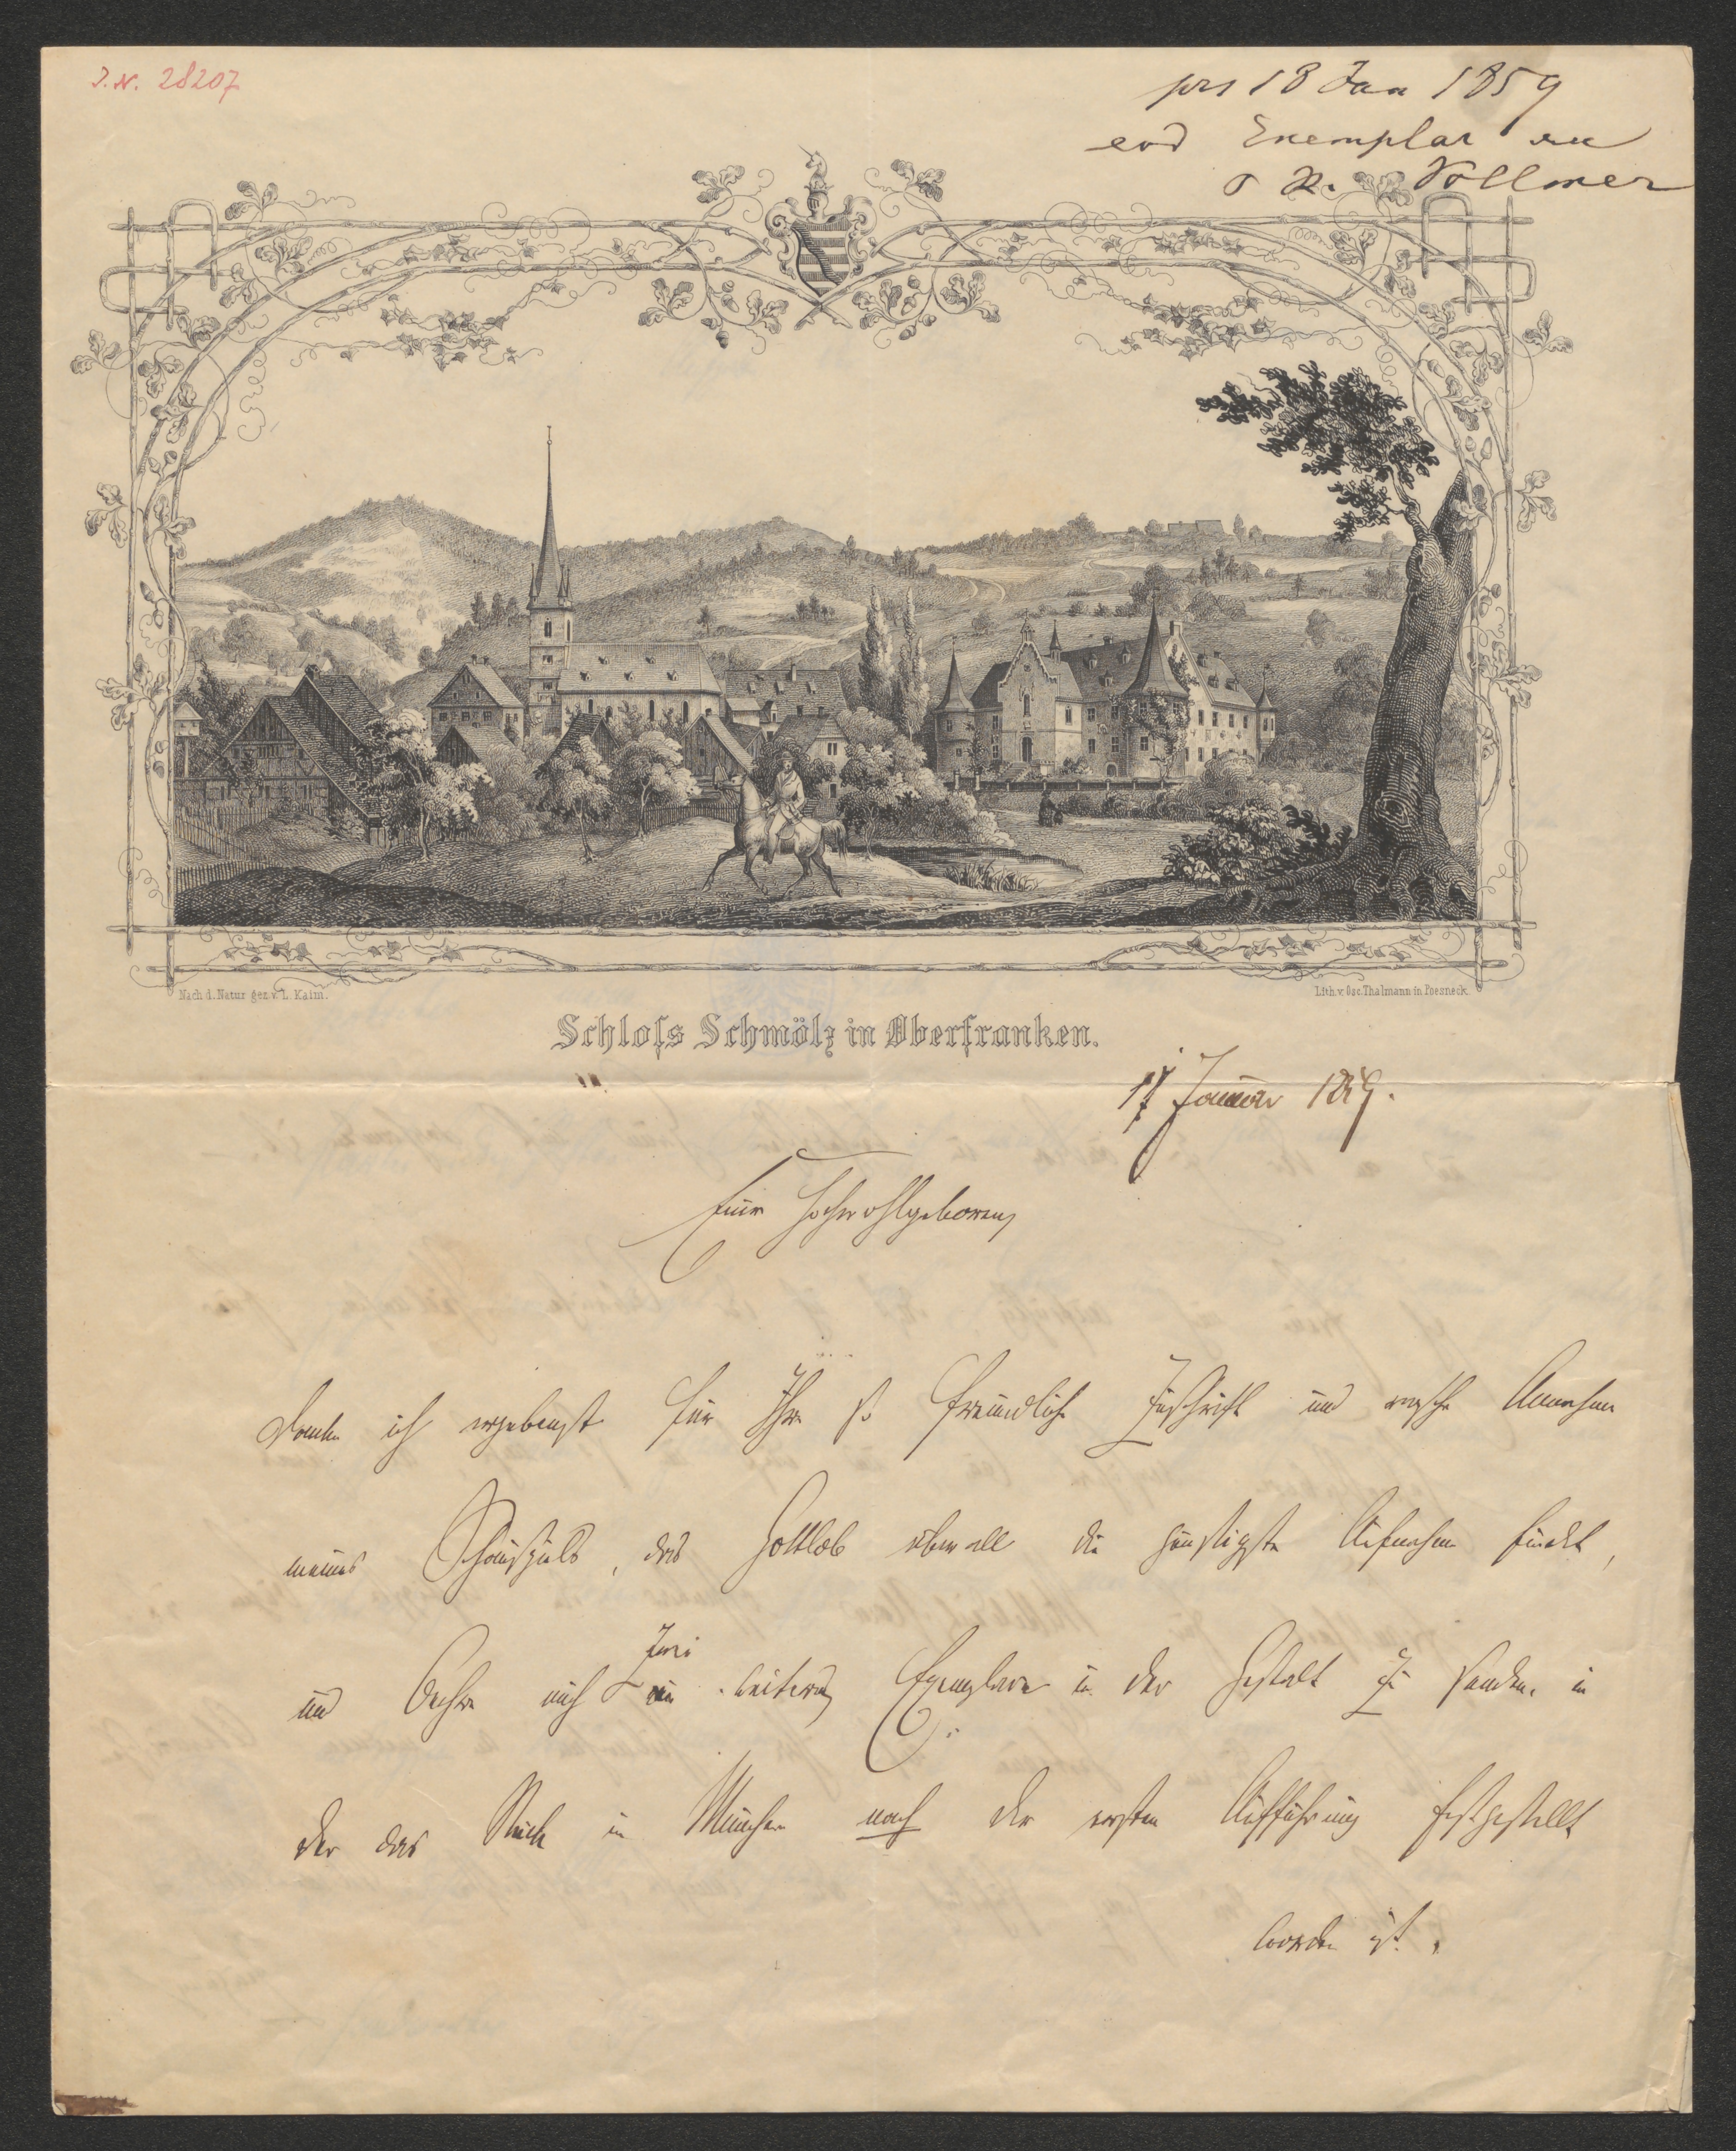 I. N. 28207
prs 18 Jan 1859
eod Exemplar an
Vollmer
Nach d. Natur gez. v. L. Kaim.
Lith. v. Osc. Thalmann in Poesneck.
Schloſs Schmölz in Oberfranken.
17 Januar 1859.
Euer Hochwohlgeboren
danke ich ergebenst für Ihre so freundliche Zuschrift und rasche Annahme
meines Schauspiels, das Gottlob überall die günstigste Aufnahme findet,
und beehre mich zwei weitere Exemplare in der Gestalt zu senden, in
der das Stück in München nach der ersten Aufführung festgestellt
worden ist.